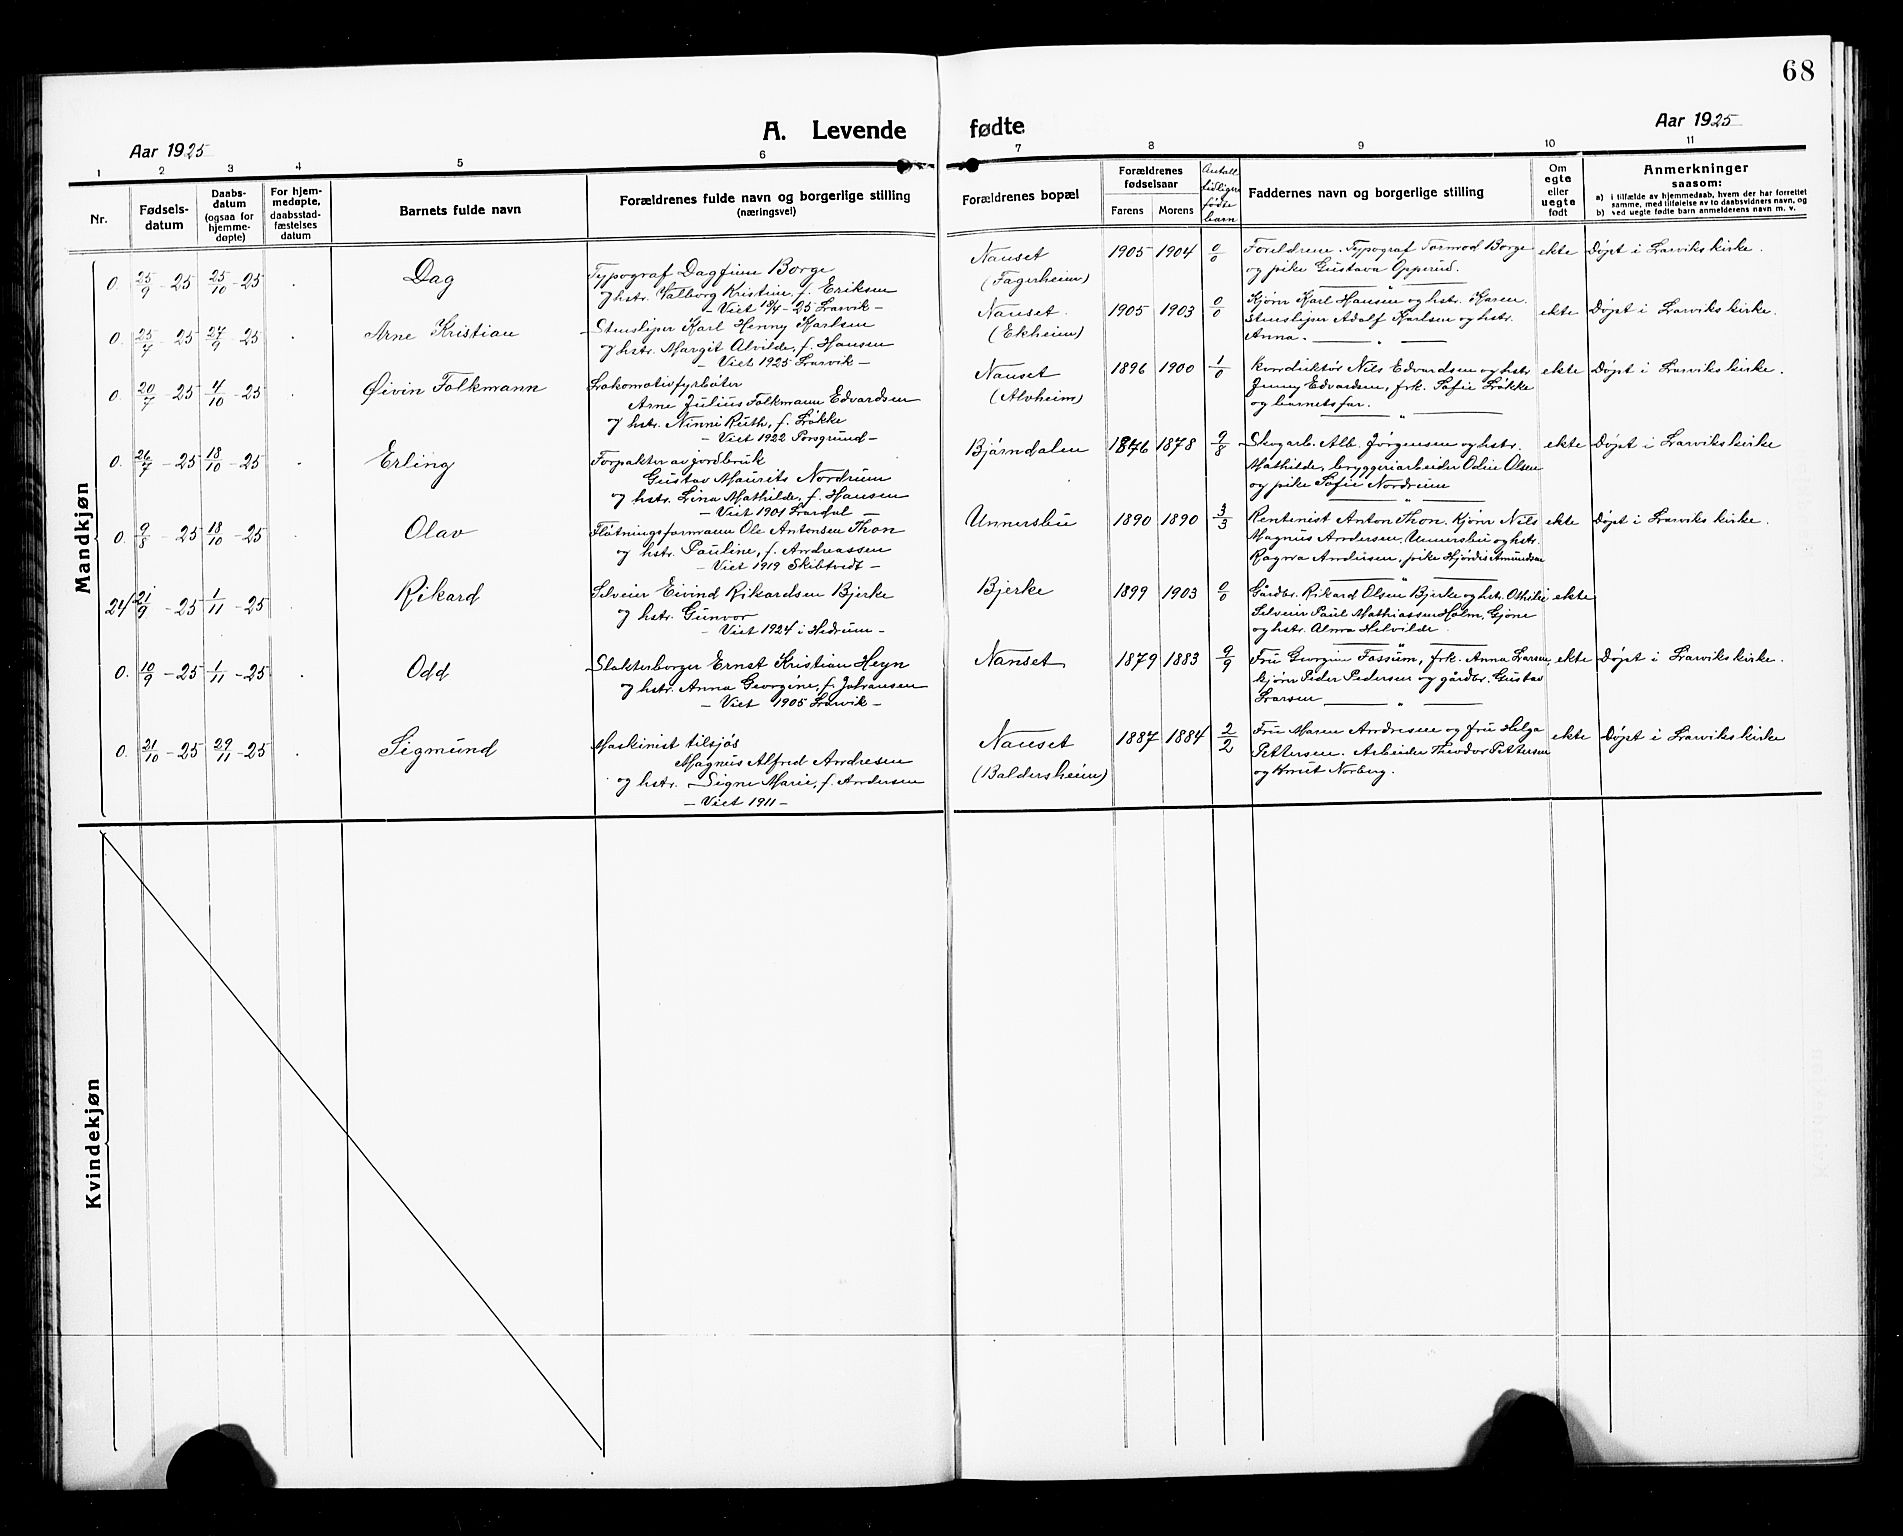 68
A. Levende fødte
Aar 1925
Aar 1925
1 2 3 4 5 6 7 8 9 10 11
Nr.
Fødselsdatum
Daabsdatum (ogsaa for hjemmedøpte)
For hjemmedøpte, daabsstadfæstelses datum
Barnets fulde navn
Forældrenes fulde navn og borgerlige stilling (næringsvei)
Forældrenes bopæl
Forældrenes fødselsaar
Farens Morens
Antall tidligere fødte barn
Faddernes navn og borgerlige stilling
Om egte eller uegte født
Anmerkninger
saasom:
a) i tilfælde av hjemmedaab, hvem der har forrettet samme, med tilføielse av to daabsvidners navn, og
b) ved uegte fødte barn anmelderens navn m. v.
Mandkjøn
0. 25/9 - 25 25/10 - 25 Dag
Typograf Dagfinn Borge
og hstr. Valborg Kristine, f. Eriksen
- Viet - 25 Larvik -
Nanset
(Fagerheim)
1905 1904 0/0
Foreldrene. Typograf Tormod Borge
og pike Gustava Opperud.
ekte Døpt i Larviks kirke.
0. 25/7 - 25 27/9 - 25 Arne Kristian
Stensliper Karl Henry Karlsen
og hstr. Margit Alvilde, f. Hansen
- Viet 1925 Larvik -
Nanset.
(Ekheim)
1905 1903 0/0
Kjørn Karl Hansen og hstr. Karen.
Stensliper Adolf Karlsen og hstr.
Anna.
ekte Døpt i Larviks kirke.
0. 20/7 - 25 4/10 - 25 Øivin Folkmann
Lokomotivfyrbøter
Arne Julius Folkmann Edvardsen
og hstr. Ninni Ruth, f. Løkke
- Viet 1922 Porsgrund -
Nanset
(Alvheim)
1896 1900 1/0
Konduktør Nils Edvardsen og hstr
Jenny Edvardsen, frk. Sofie Løkke
og barnets far.
ekte Døpt i Larviks kirke.
0. 26/7 - 25 18/10 - 25 Erling
Forpakter av jordbruk
Gustav Maurits Nordrum
og hstr. Lina Mathilde, f. Hansen
- Viet 1901 Lardal -
Bjørndalen
1876 1878 9/8
Skogarb. Alb. Jørgensen og hstr.
Mathilde, bryggeriarbeider Odin Olsen
og pike Sofie Nordrum
ekte Døpt i Larviks kirke
0. 9/8 - 25 18/10 - 25 Olav
Fløtningsformann Ole Antonsen Thon
og hstr. Pauline, f. Andreassen
- Viet 1919 Skibtvedt -
Unnersbu
1890 1890 3/3
Rentenist Anton Thon. Kjørr Nils
Magnus Andersen, Unnersbu og hstr.
Ragna Andersen, pike Hjørdis Amundsen
ekte Døpt i Larviks kirke.
24 21/9 - 25 1/11 - 25 Rikard
Selveier Eivind Rikardsen Bjerke
og hstr. Gunvor
- Viet 1924 i Hedrum -
Bjerke
1899 1903 0/0
Gårdbr. Rikard Olsen Bjerke og hstr. Othilie
Selveier Paul Mathiassen Holm, Gjone
og hstr. Alma Helvilde.
ekte
0. 10/9 - 25 1/11 - 25 Odd
Slakterborger Ernst Kristian Heyn
og hstr. Anna Georgine, f. Johansen
- Viet 1905 Larvik -
Nanset
1879 1883 9/9
Fru Georgine Fossum, frk. Anna Larsen,
kjørn Peder Pedersen og gårdbr. Gustav
Larsen
ekte Døpt i Larviks kirke.
0. 21/10 - 25 29/11 - 25 Sigmund
Maskinist tilsjøs
Magnus Alfred Andresen
og hstr. Signe Marie, f. Andersen
- Viet 1911 -
Nanset
(Baldersheim)
1887 1884 2/2
Fru Maren Andresen og fru Helga
Pettersen. Arbeider Theodor Pettersen
og Knut Norberg.
ekte Døpt i Larviks kirke
Kvindekjøn